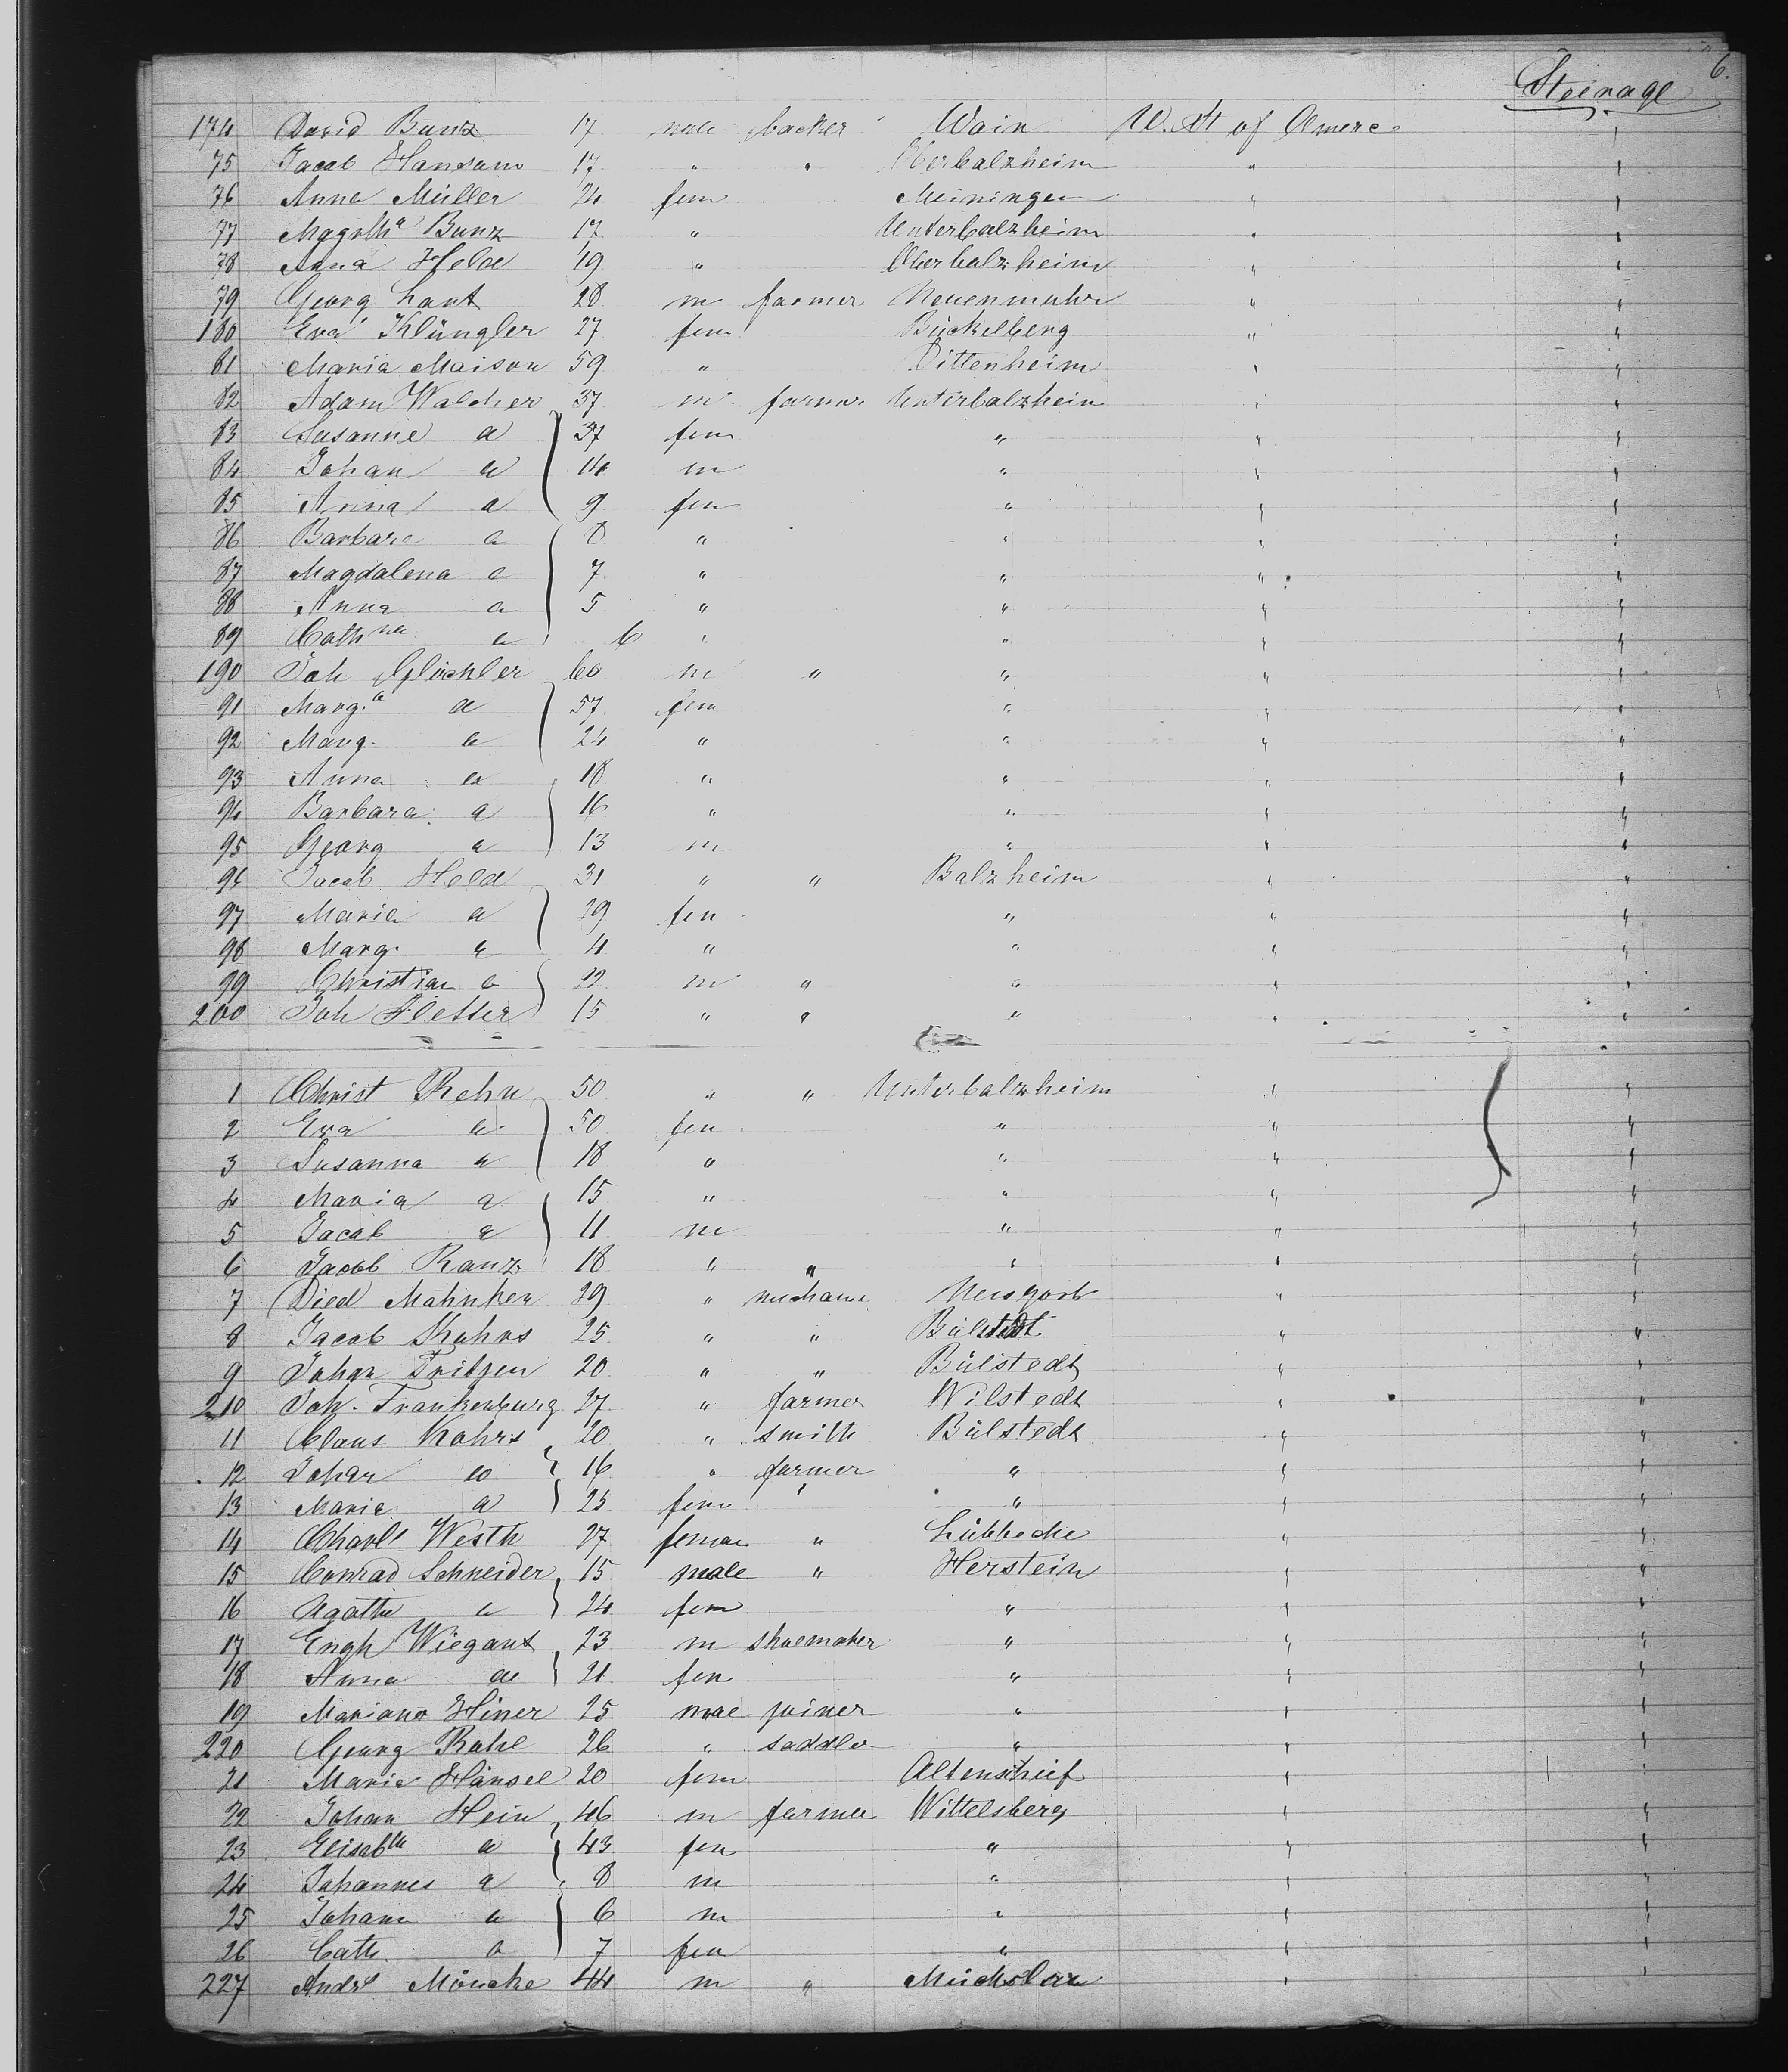 6.
Steerage
174 David Bunz 17 male backer Wain U. St of Americ
75 Jacob Hansam 17 " " Oberbalzheim "
76 Anna Müller 24 fem Meiningen "
77 Magrthª Bunz 17 " Unterbalzheim "
78 Anna Held 19 " Oberbalzheim "
79 Georg Laut 28 m farmer Neuenmuhr " "
180 Eva Klüngler 27 fem Bückelberg " "
81 Maria Maison 59 " Dittenheim " "
82 Adam Walcher 37 m farmer Unterbalzheim " "
83 Susanne a 37 fem " " "
84 Johan a 14 m " " "
85 Anna a 9 fem " " "
86 Barbara a 8 " " " "
87 Magdalena a 7 " " " "
88 Anna a 5 " " " "
89 Cathna a 6 " " " "
190 Joh Glöckler 60 m " " " "
91 Marg.ª a 57 fem " " "
92 Marg. a 24 " " " "
93 Anna a 18 " " " "
94 Barbara a 16 " " " "
95 Georg a 13 m " " "
96 Jacob Held 31 " " Balzheim " "
97 Maria a 29 fem " " "
98 Marg. a 4 " " " "
99 Christian a 22 m " " " "
200 Joh 15 " " " " "
1 Christ Rehn 50 " " Unterbalzheim " "
2 Eva a 50 fem " " "
3 Susanna a 18 " " " "
4 Maria a 15 " " " "
5 Jacob a 11 m " " "
6 Jacob Ranz 18 " " " " "
7 Died Mahnken 29 " mechanic " "
8 Jacob Kahrs 25 " " Bülstedt " "
9 Johan Fritzen 20 " " Bülstedt " "
210 Joh. Frankenburg 27 " farmer Wilstedt " "
11 Claus Kahrs 20 " smith Bülstedt " "
12 Johan a 16 " farmer " " "
13 Marie a 25 fem " " "
14 Charl Westh 27 femae " Lübbecke " "
15 Conrad Schneider 15 male " Herstein " "
16 Agathe a 24 fem " " "
17 Engh Wiegant 23 m shoemaker " " "
18 Anna a 21 fem " " "
19 Mariano Hiner 25 mae joiner " " "
220 Georg Rahl 26 " saddle " " "
21 Marie Hänsel 20 fem Altenschief " "
22 Johan Hein 46 m farmer Wittelsberg " "
23 Elisabth a 43 fem " " "
24 Johannes a 8 m " " "
25 Johann a 6 m " " "
26 Cath. a 7 fem " " "
227 Andr Möncke 44 m " " "